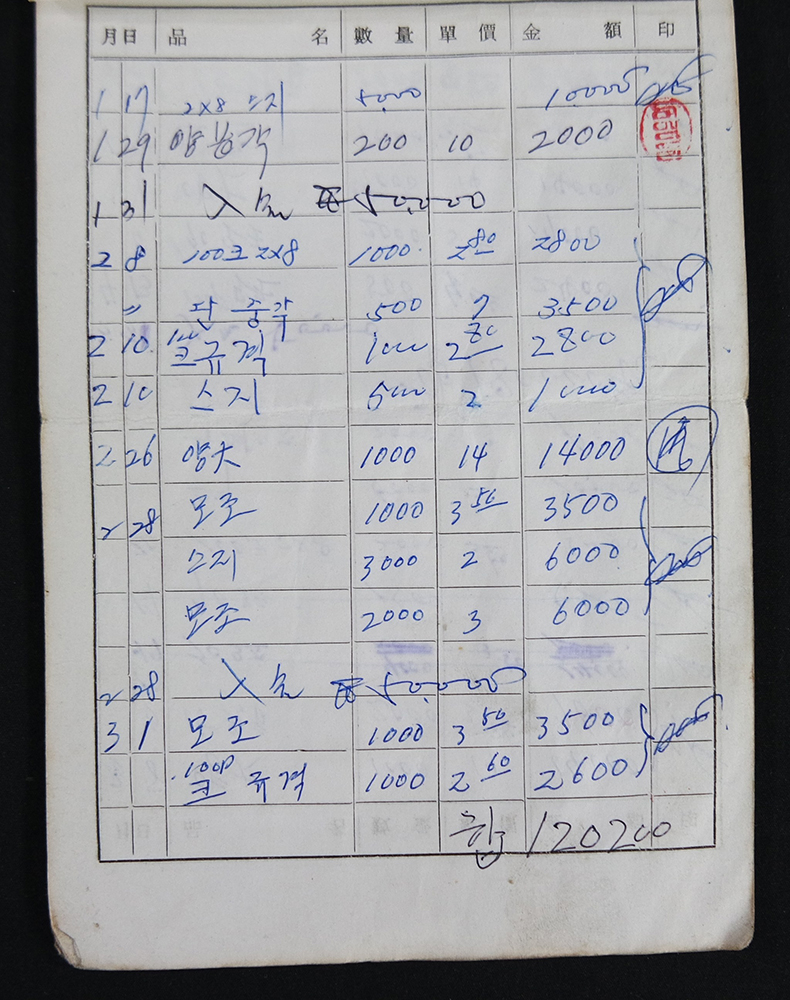 月 日 品 名 數 量 單 價 金 額 印
1 17 2x8 스지 5000 10000
1 29 양봉각 200 10 2000
1 31 入金 ₩50,000
2 8 100크 2x8 1000 2 80 2800
〃 단중각 500 7 3.500
2 10 규격 1000 2 80 2800
2 10 스지 5000 2 10000
2 26 양大 1000 14 14000
2 28 모조 1000 3 50 3500
스지 3000 2 6000
모조 2000 3 6000
2 28 入金 ₩50,000
3 1 모조 1000 3 50 3500
100P 크 규격 1000 2 60 2600
합 120200